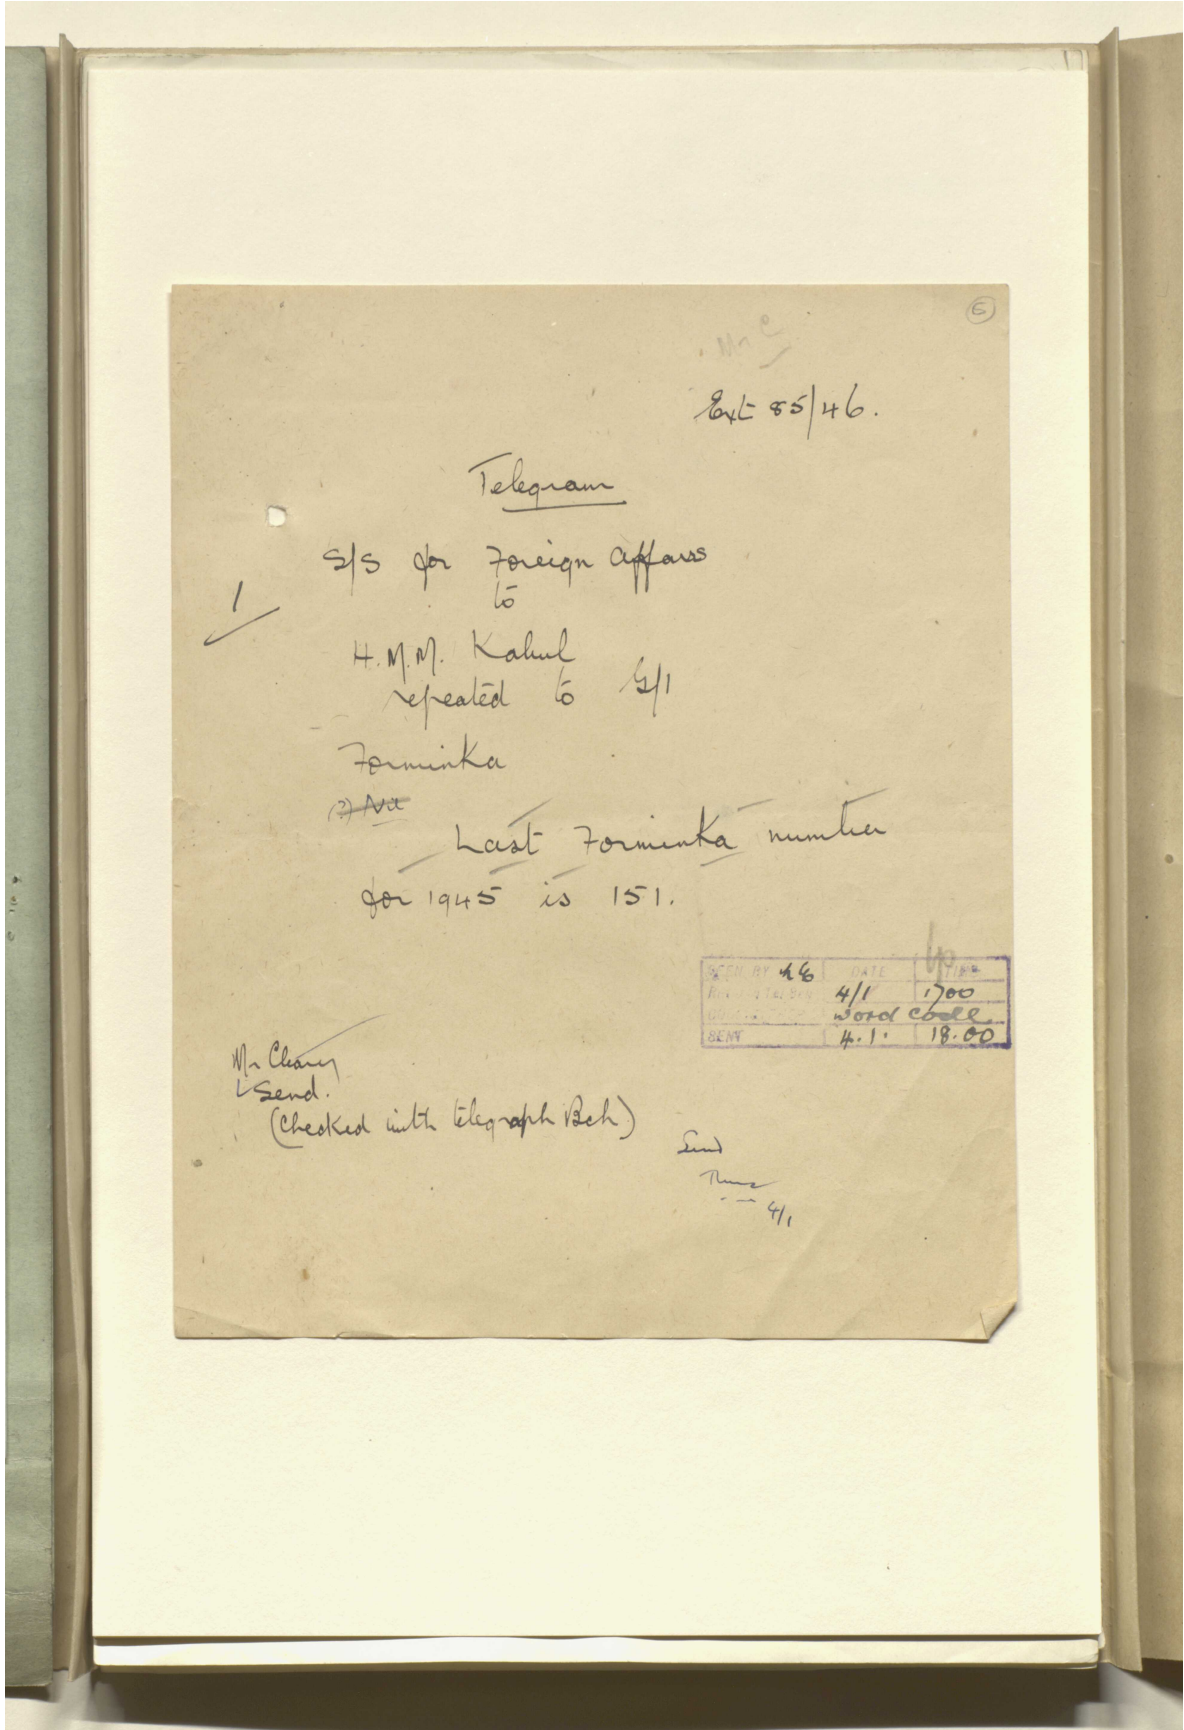 5
Mr C
Ext 85/46.
Telegram
S/S for Foreign Affairs
to
1
H.M.M. Kabul
repeated to G/I
Forminka
(?) Nil
Last Forminka number
for 1945 is 151.
SEEN BY DATE TIME
4/1 1700
word code
SENT 4.1. 18.00
Mr Cleary
Send.
(Checked with telegraph Bch)
Send
4/1